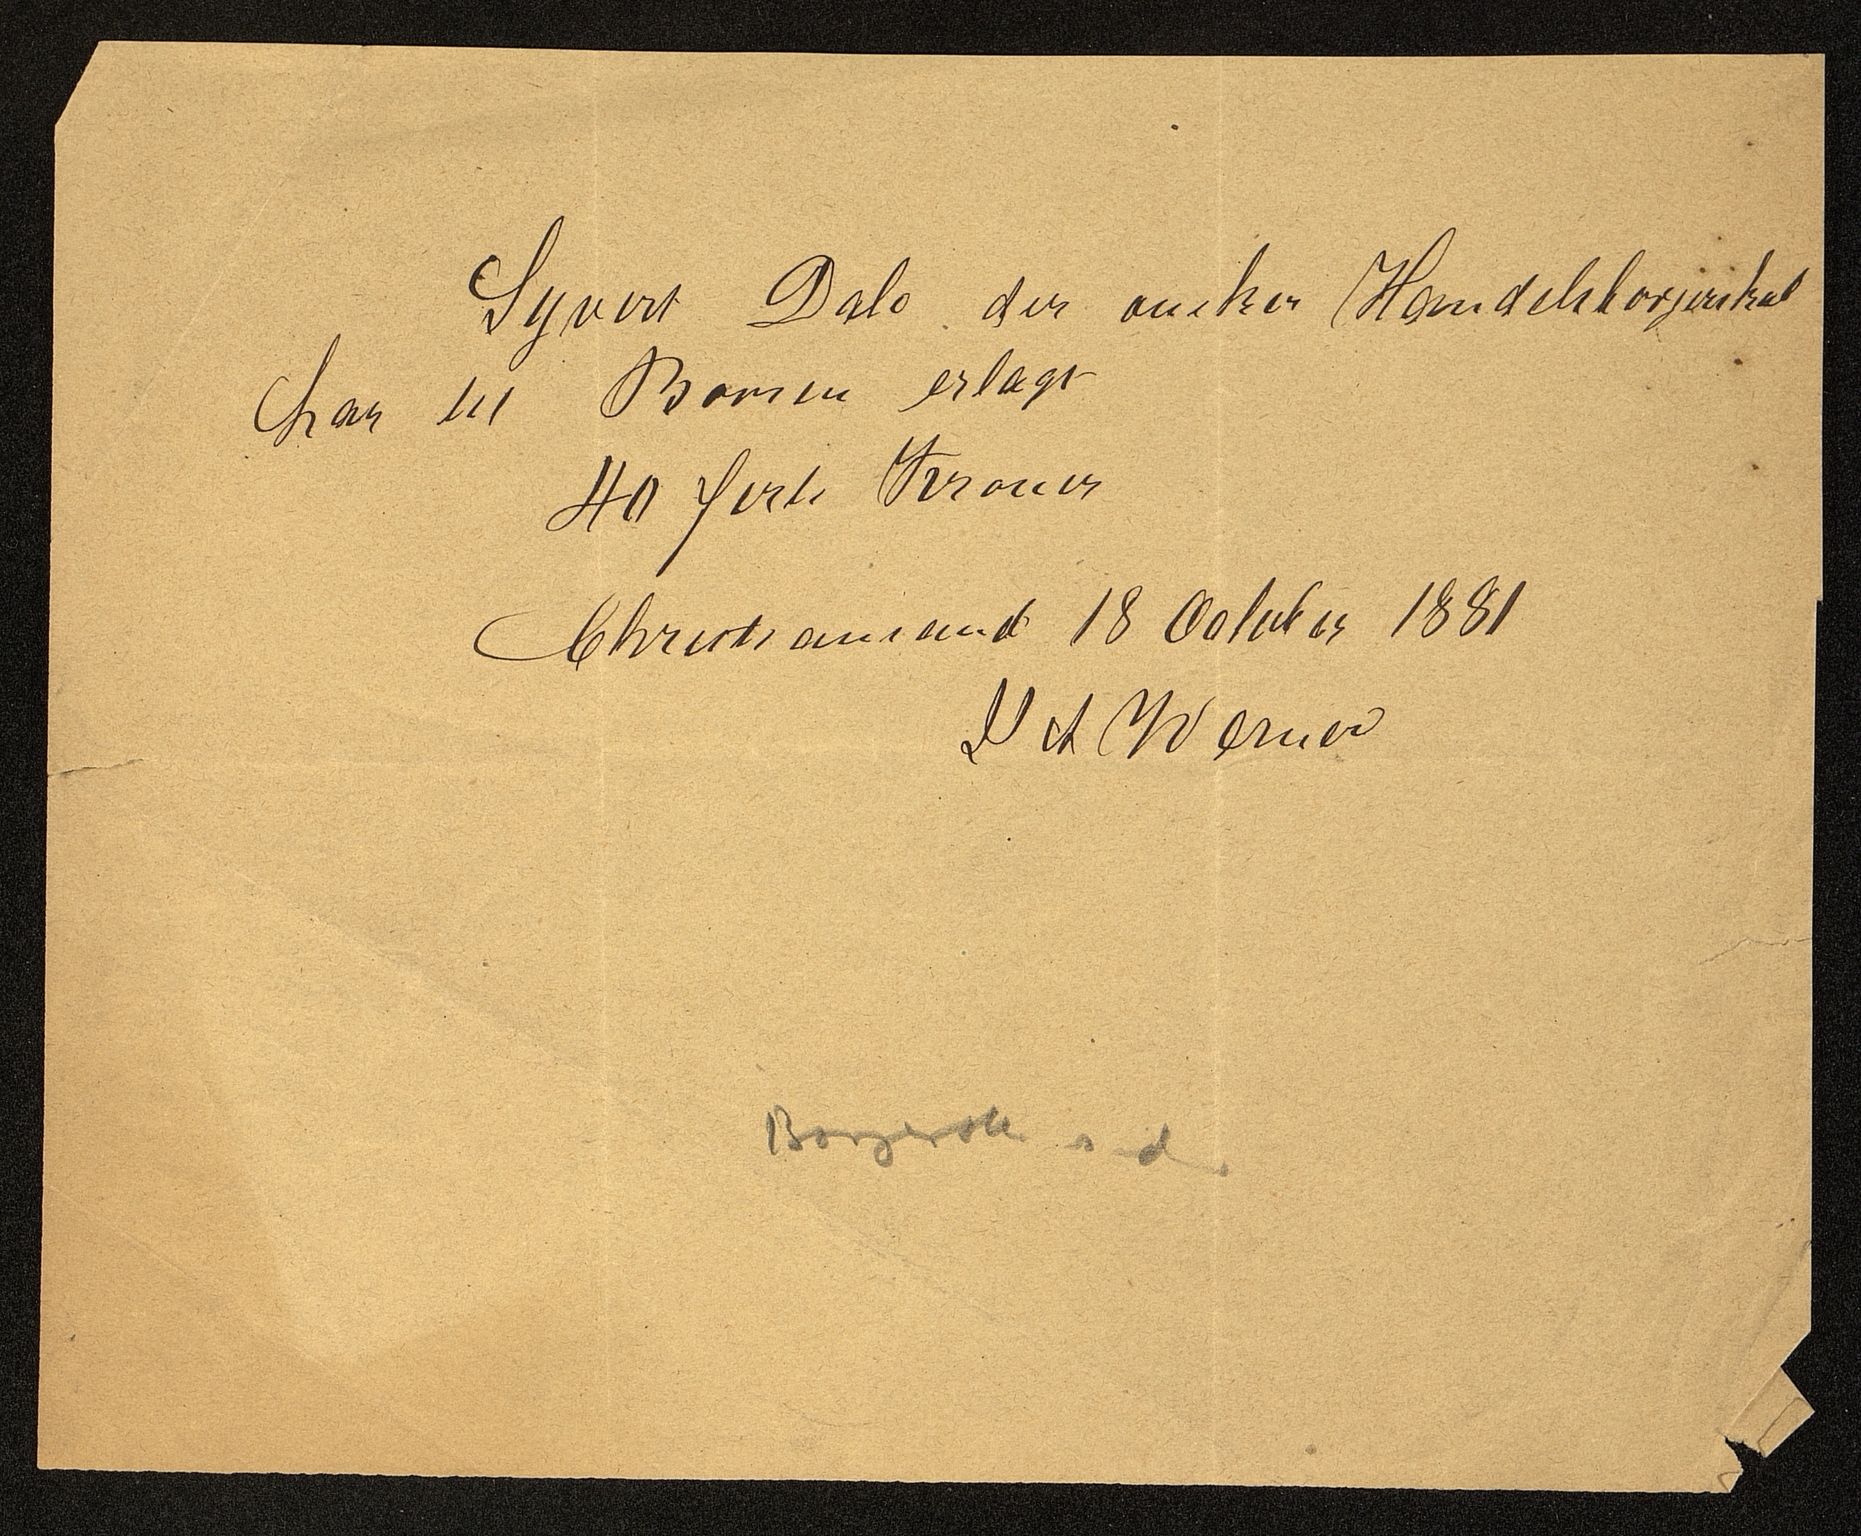 Syvert Dale der ønsker Handelsborgerskab
har til Børsen erlagt
40 førti Kroner
Christiansand 18 October 1881
A Werner